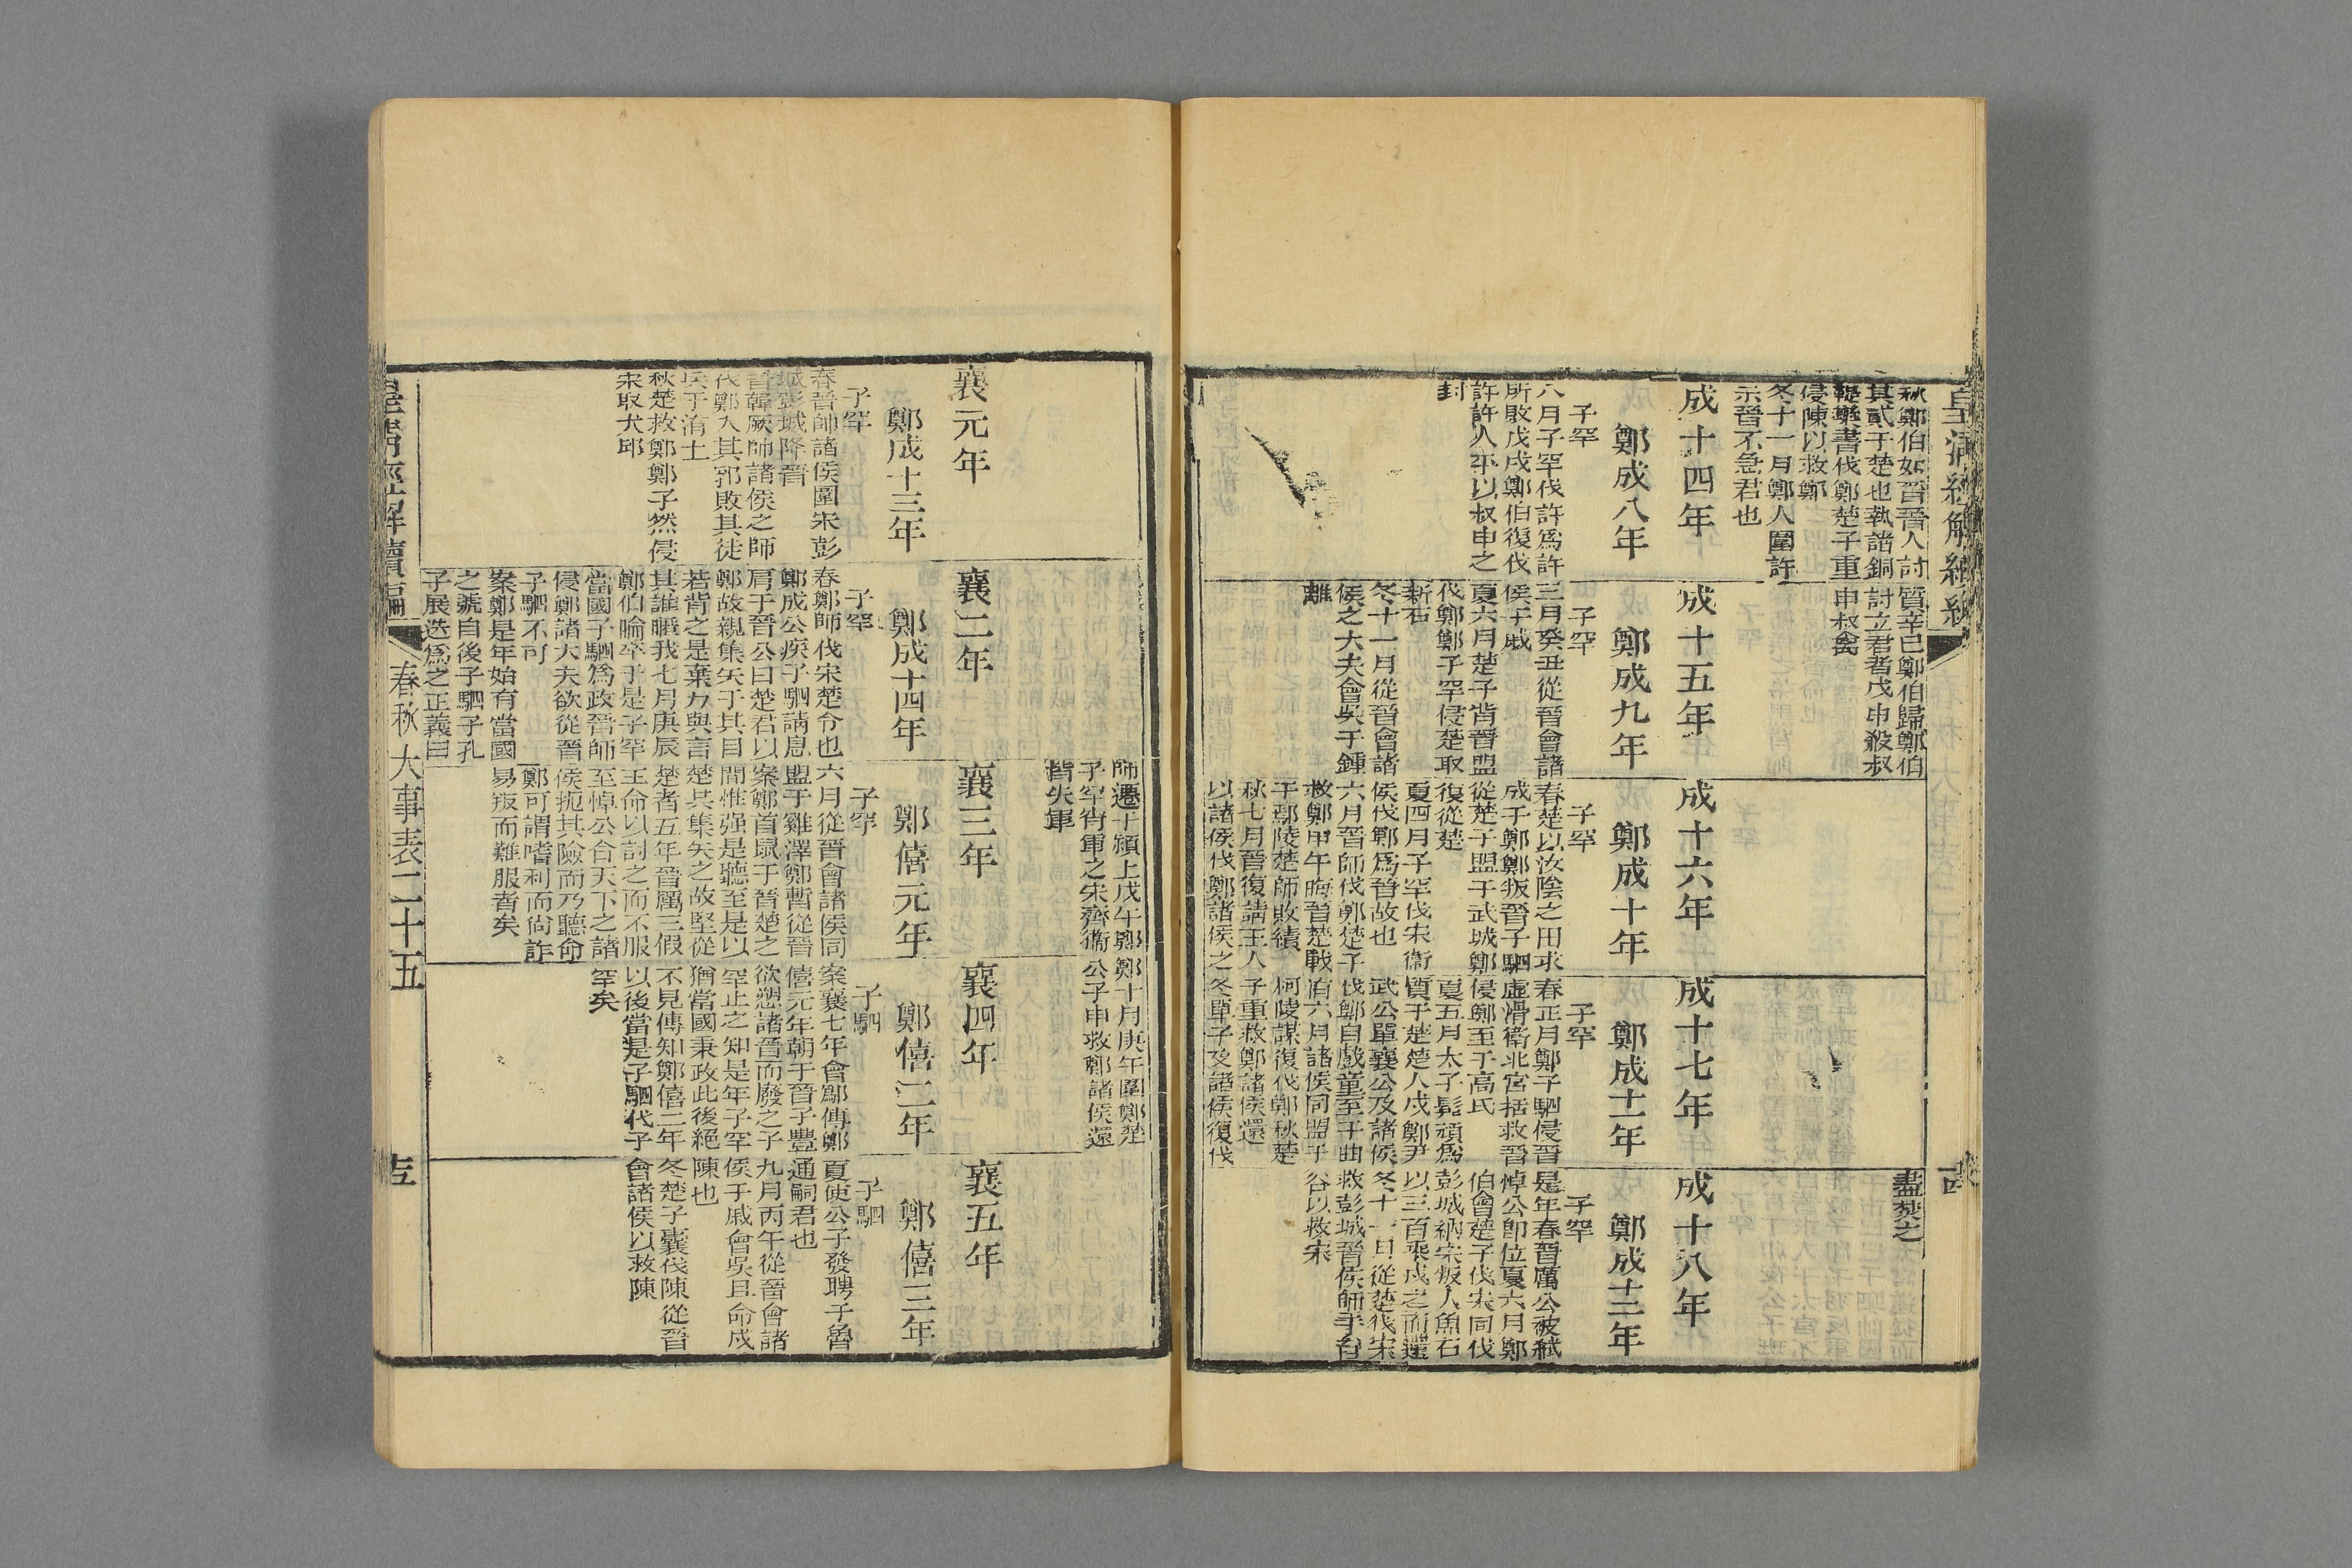 皇清經解續編
秋鄭伯如晉晉人討
其貳于楚也執諸銅
鞮欒書伐鄭楚子重
侵陳以救鄭
冬十一月鄭人圍許
示晉不急君也
質辛巳鄭伯歸鄭伯
討立君者戊申殺叔
申叔禽
盡焚之
成十四年
鄭成八年
子罕
八月子罕伐許為許
所敗戊戌鄭伯復伐
許許人平以叔申之
封
成十五年
鄭成九年
子罕
三月癸丑從晉會諸
侯于戚
夏六月楚子背晉盟
伐鄭鄭子罕侵楚取
新石
冬十一月從晉會諸
侯之大夫會吳于鍾
離
成十六年
鄭成十年
子罕
春楚以汝陰之田求
成于鄭鄭叛晉子駟
從楚子盟于武城鄭
復從楚
夏四月子罕伐宋衞
侯伐鄭為晉故也
六月晉師伐鄭楚子
救鄭甲午晦晉楚戰
于鄢陵楚師敗績
秋七月晉復請王人
以諸侯伐鄭諸侯之
成十七年
鄭成十一年
子罕
春正月鄭子駟侵晉
虛滑衞北宮括救晉
侵鄭至于高氏
夏五月太子髡頑為
質于楚楚人戍鄭尹
武公單襄公及諸侯
伐鄭自戲童至于曲
洧六月諸侯同盟于
柯陵謀復伐鄭秋楚
子重救鄭諸侯還
冬單子及諸侯復伐
成十八年
鄭成十二年
子罕
是年春晉厲公被弒
悼公即位夏六月鄭
伯會楚子伐宋同伐
彭城納宋叛人魚石
以三百乘戍之而還
冬十一月從楚伐宋
救彭城晉侯師于台
谷以救宋
師遷于潁上戊午鄭
子罕宵軍之宋齊衞
皆失軍
鄭十月庚午圍鄭楚
公子申救鄭諸侯還
襄元年
鄭成十三年
子罕
春晉師諸侯圍宋彭
城彭城降晉
晉韓厥師諸侯之師
伐鄭入其郛敗其徒
兵于洧上
秋楚救鄭鄭子然侵
宋取犬邱
襄二年
鄭成十四年
子罕
春鄭師伐宋楚令也
鄭成公疾子駟請息
肩于晉公曰楚君以
鄭故親集矢于其目
若背之是棄力與言
其誰暱我七月庚辰
鄭伯睔卒于是子罕
當國子駟為政晉師
侵鄭諸大夫欲從晉
子駟不可
案鄭是年始有當國
之號自後子駟子孔
子展迭為之正義曰
襄三年
鄭僖元年
子罕
六月從晉會諸侯同
盟于雞澤鄭暫從晉
案鄭首鼠于晉楚之
間惟强是聽至是以
楚共集矢之故堅從
楚者五年晉厲三假
王命以討之而不服
至悼公合天下之諸
侯扼其險而乃聽命
鄭可謂嗜利而尙詐
易叛而難服者矣
襄四年
鄭僖二年
子駟
案襄七年會鄬傳鄭
僖元年朝于晉子豐
欲愬諸晉而廢之子
罕止之知是年子罕
猶當國秉政此後絕
不見傳知鄭僖二年
以後當是子駟代子
罕矣
襄五年
鄭僖三年
子駟
夏使公子發聘于魯
通嗣君也
九月丙午從晉會諸
侯于戚會吳且命戍
陳也
冬楚子囊伐陳從晉
會諸侯以救陳
皇清經解續編
春秋大事表二十五